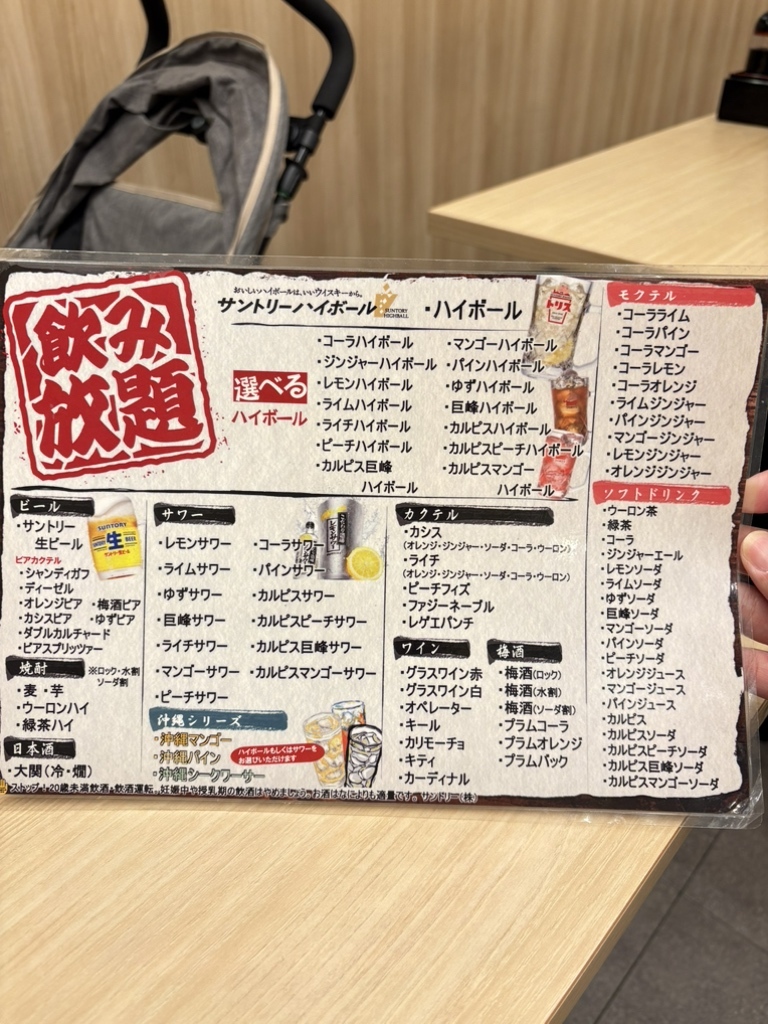 飲み
放題
おいしいハイボールは、いいウイスキーから。
サントリーハイボール
SUNTORY
HIGHBALL
・ハイボール
選べる
ハイボール
・コーラハイボール
・ジンジャーハイボール
・レモンハイボール
・ライムハイボール
・ライチハイボール
・ピーチハイボール
・カルピス巨峰
ハイボール
・マンゴーハイボール
・パインハイボール
・ゆずハイボール
・巨峰ハイボール
・カルピスハイボール
・カルピスピーチハイボール
・カルピスマンゴー
ハイボール
トリス
モクテル
・コーラライム
・コーラパイン
・コーラマンゴー
・コーラレモン
・コーラオレンジ
・ライムジンジャー
・パインジンジャー
・マンゴージンジャー
・レモンジンジャー
・オレンジジンジャー
ソフトドリンク
・ウーロン茶
・緑茶
・コーラ
・ジンジャーエール
・レモンソーダ
・ライムソーダ
・ゆずソーダ
・巨峰ソーダ
・マンゴーソーダ
・パインソーダ
・ピーチソーダ
・オレンジジュース
・マンゴージュース
・パインジュース
・カルピス
・カルピスソーダ
・カルピスピーチソーダ
・カルピス巨峰ソーダ
・カルピスマンゴーソーダ
ビール
・サントリー
生ビール
SUNTORY
生
ビアカクテル
・シャンディガフ
・ディーゼル
・オレンジビア ・梅酒ビア
・カシスビア ・ゆずビア
・ダブルカルチャード
・ビアスプリッツァー
焼酎
※ロック・水割
ソーダ割
・麦 ・芋
・ウーロンハイ
・緑茶ハイ
日本酒
・大関(冷・燗)
サワー
・レモンサワー
・ライムサワー
・ゆずサワー
・巨峰サワー
・ライチサワー
・マンゴーサワー
・ピーチサワー
・コーラサワー
・パインサワー
・カルピスサワー
・カルピスピーチサワー
・カルピス巨峰サワー
・カルピスマンゴーサワー
沖縄シリーズ
・沖縄マンゴー
・沖縄パイン
・沖縄シークワーサー
ハイボールもしくはサワーを
お選びいただけます
カクテル
・カシス
(オレンジ・ジンジャー・ソーダ・コーラ・ウーロン)
・ライチ
(オレンジ・ジンジャー・ソーダ・コーラ・ウーロン)
・ピーチフィズ
・ファジーネーブル
・レゲエパンチ
ワイン
・グラスワイン赤
・グラスワイン白
・オペレーター
・キール
・カリモーチョ
・キティ
・カーディナル
梅酒
・梅酒(ロック)
・梅酒(水割)
・梅酒(ソーダ割)
・プラムコーラ
・プラムオレンジ
・プラムバック
ストップ！20歳未満飲酒・飲酒運転。妊娠中や授乳期の飲酒はやめましょう。お酒はなによりも適量です。サントリー(株)